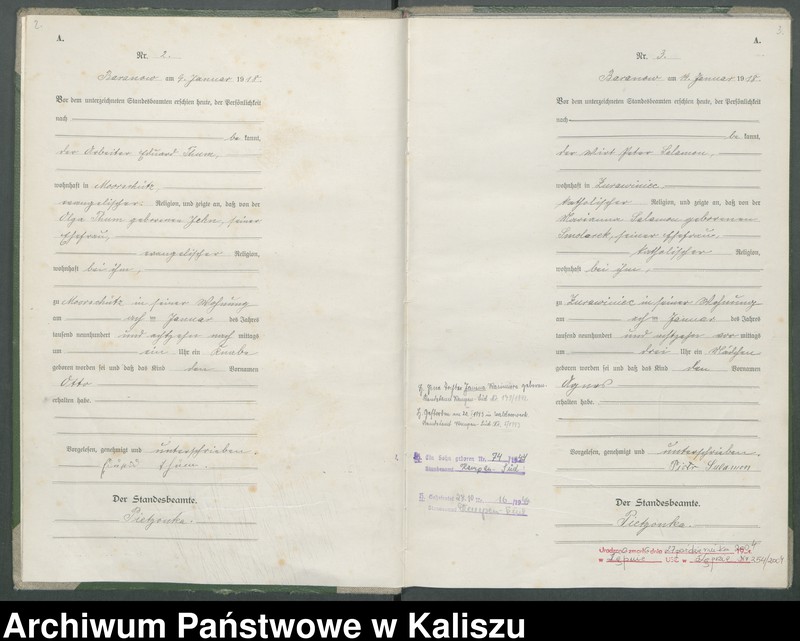 2.
A.
Nr. 2.
Baranow am 9. Januar 1918.
Vor dem unterzeichneten Standesbeamten erschien heute, der Persönlichkeit
nach
be kannt,
der Arbeiter Eduard Thum,
wohnhaft in Mroschütz,
evangelischer Religion, und zeigte an, daß von der
Olga Thum geborenen Jahn, seiner
Ehefrau,
evangelischer Religion,
wohnhaft bei ihm,
zu Mroschütz in seiner Wohnung
am Januar des Jahres
tausend neunhundert und achtzehn nach mittags
um ein Uhr ein Knabe
geboren worden sei und daß das Kind den Vornamen
Otto
erhalten habe.
Vorgelesen, genehmigt und unterschrieben.
Thum.
Der Standesbeamte.
Pietzonka.
3.
A.
Nr. 3.
Baranow am Januar 1918.
Vor dem unterzeichneten Standesbeamten erschien heute, der Persönlichkeit
nach
be kannt,
der Wirt Peter Salamon,
wohnhaft in Zurawiniec,
katholischer Religion, und zeigte an, daß von der
Marianna Salamon geborenen
Smolarek, seiner Ehefrau,
katholischer Religion,
wohnhaft bei ihm,
zu Zurawiniec in seiner Wohnung
am Januar des Jahres
tausend neunhundert und achtzehn vor mittags
um drei Uhr ein Mädchen
geboren worden sei und daß das Kind den Vornamen
Agnes
erhalten habe.
Vorgelesen, genehmigt und unterschrieben.
Piotr Salamon
Der Standesbeamte.
Pietzonka.
Ein Sohn geboren Nr. 74/1944
Standesamt Kempen Süd
Standesamt Kempen
Archiwum Państwowe w Kaliszu